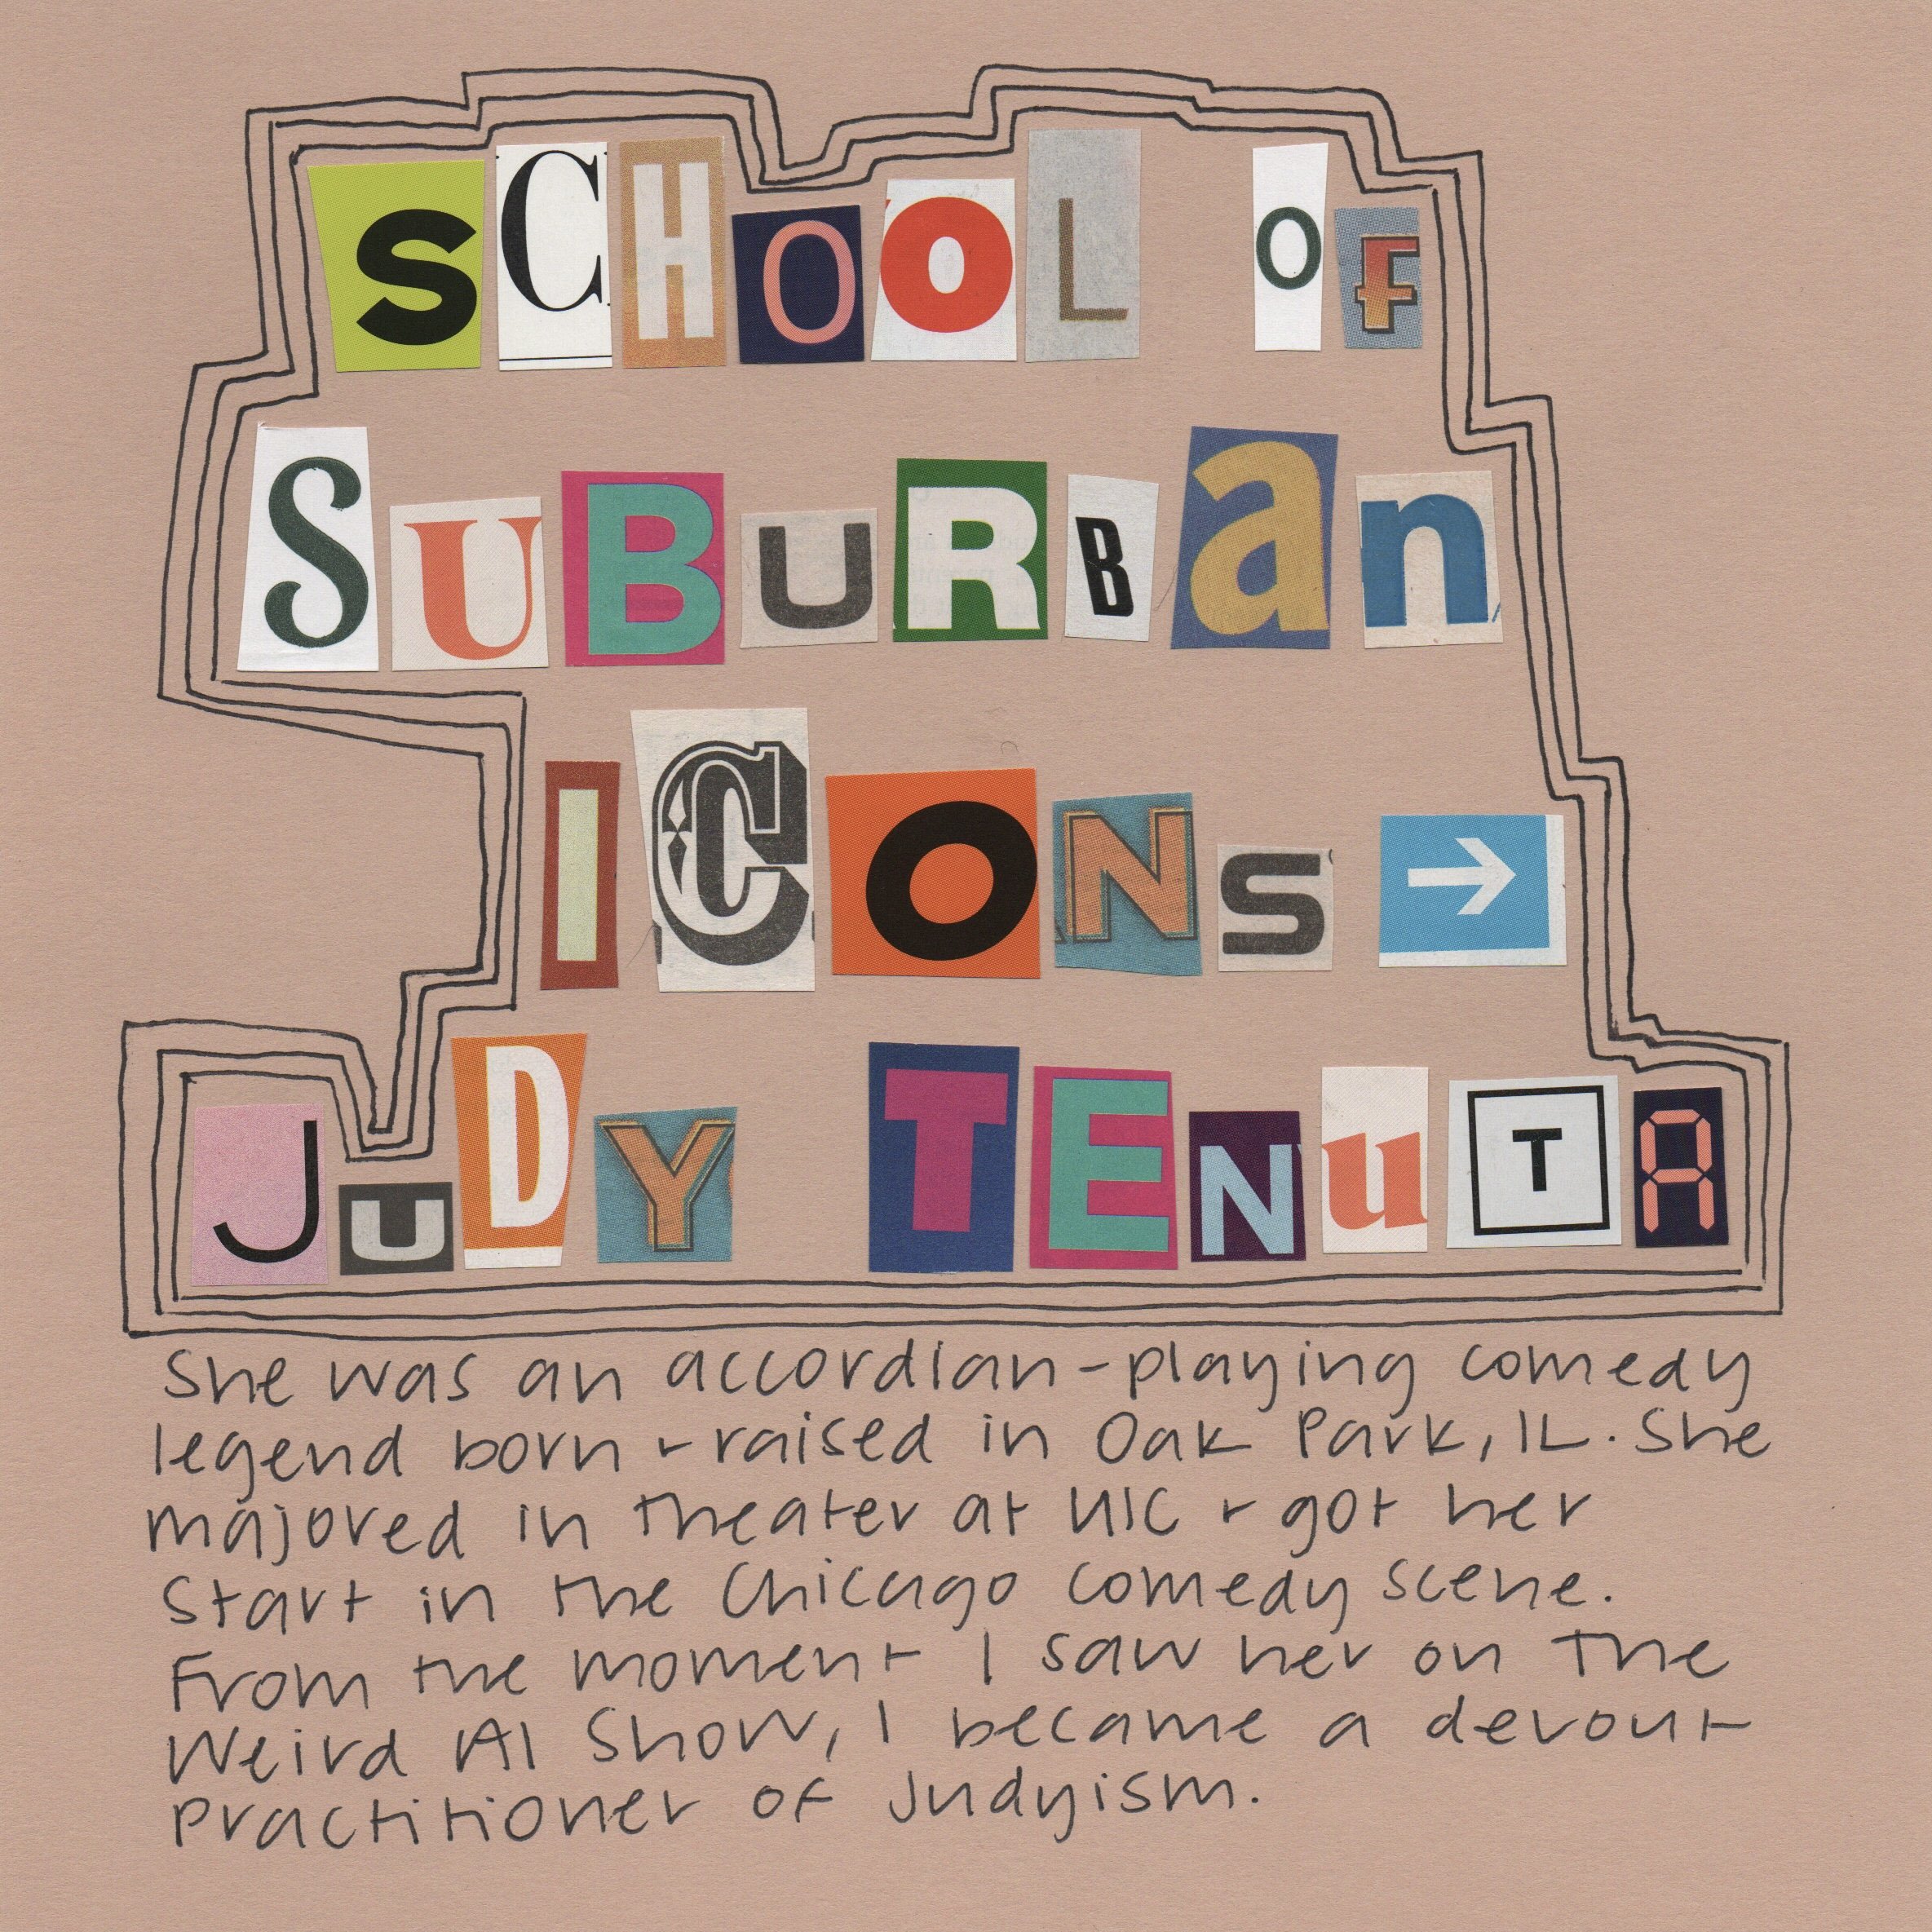 SCHOOL OF
SUBURBan
ICONS →
JUDY TENuTA
She was an accordian-playing comedy
legend born + raised in Oak Park, IL. She
majored in theater at UIC + got her
start in the Chicago comedy scene.
From the moment I saw her on The
Weird Al Show, I became a devout
practitioner of Judyism.